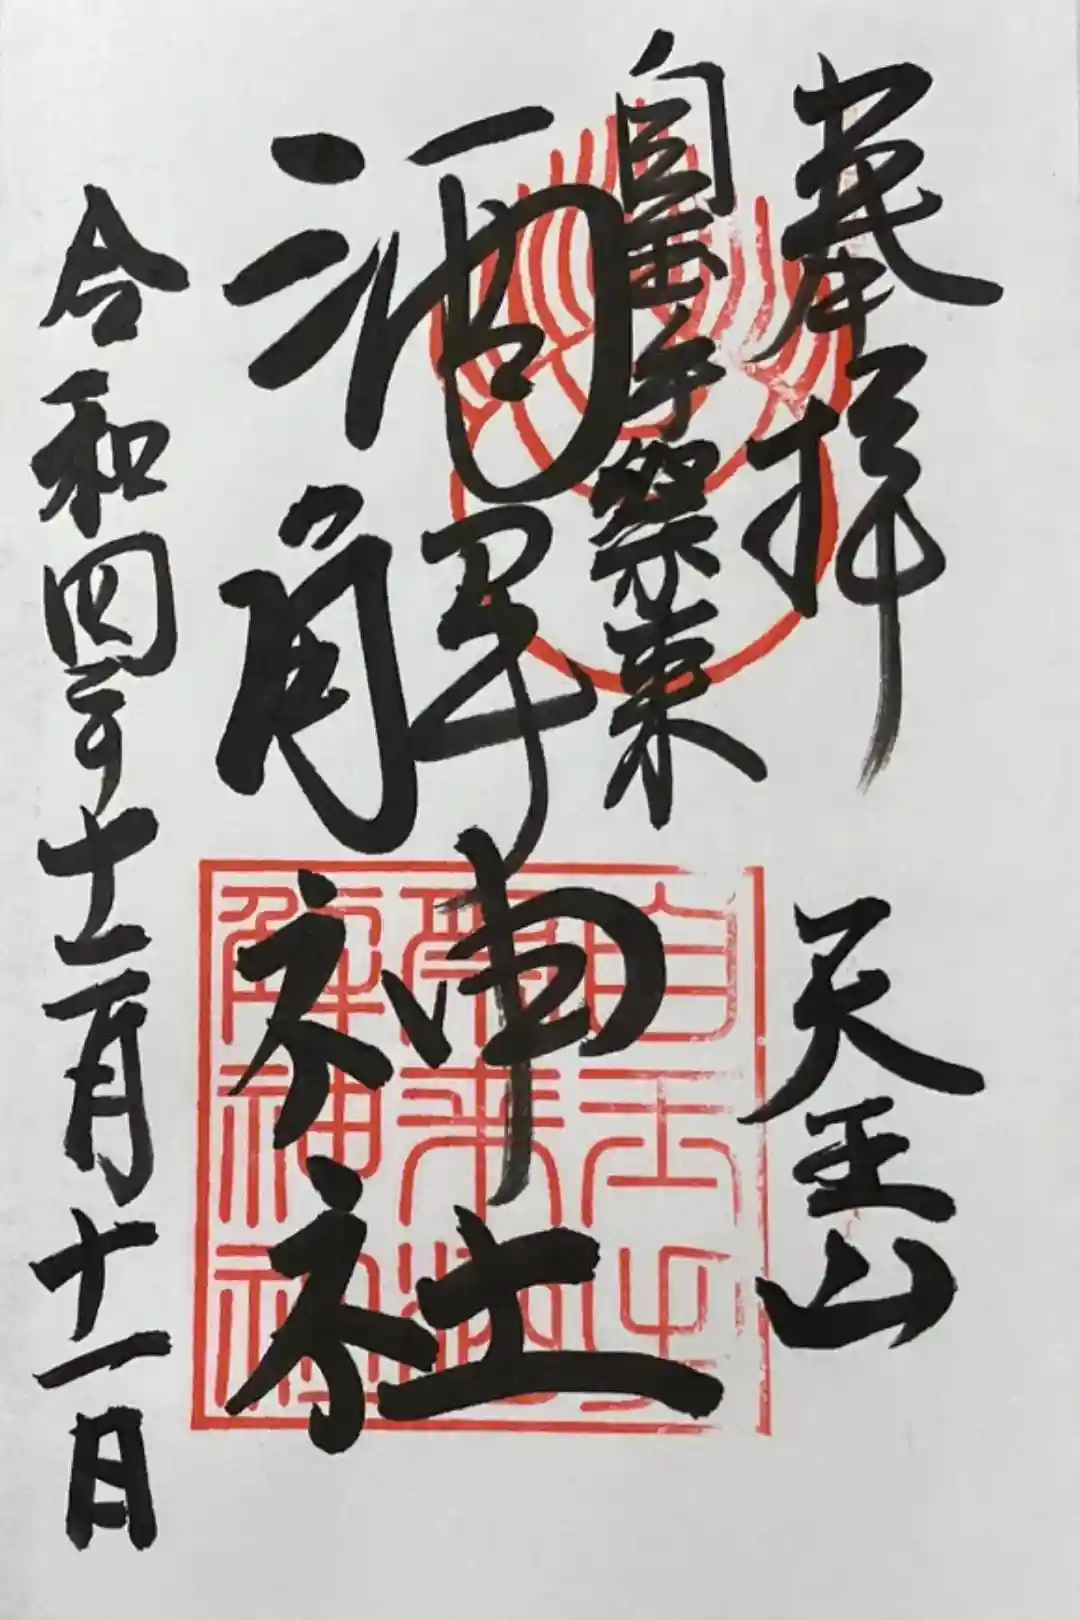 奉拝 天王山
自玉手祭来
酒解神社
令和四年十二月十一日
自玉手
祭来酒
解神社